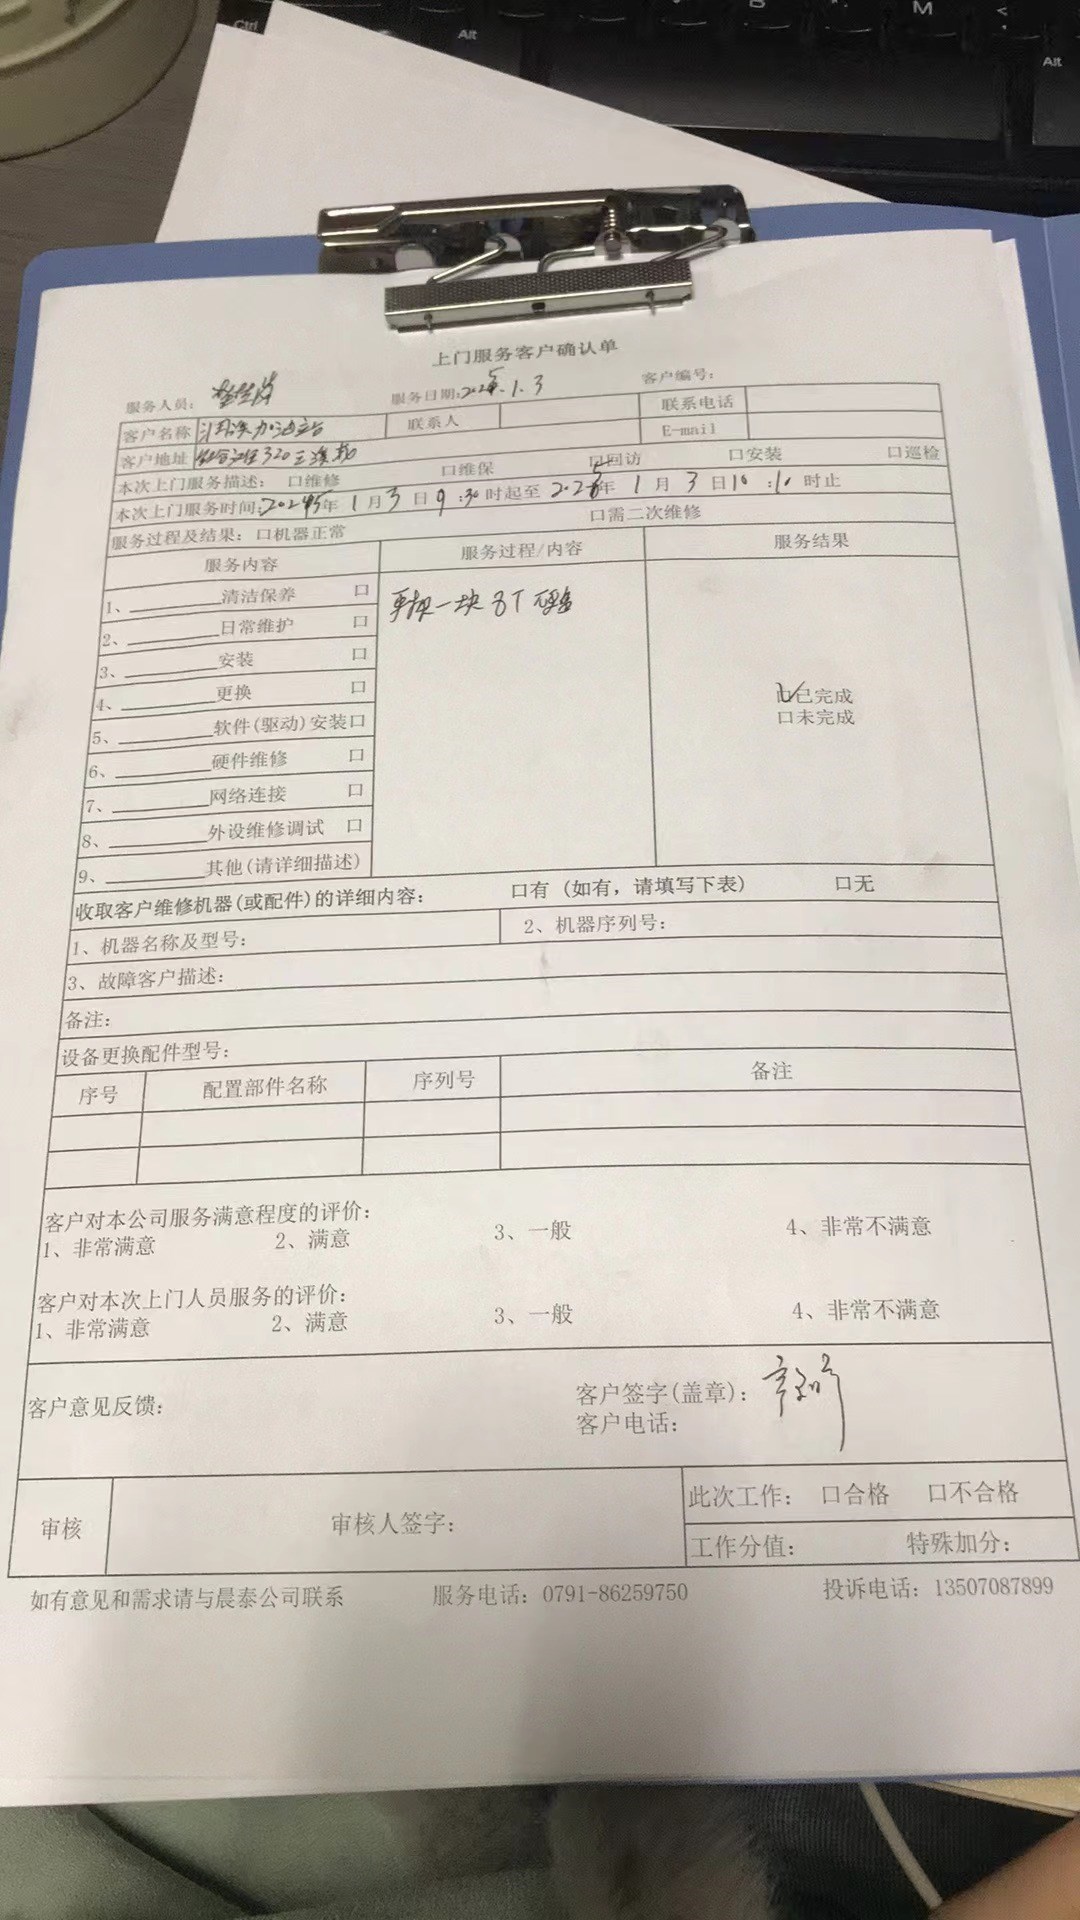 Ctrl
Alt
B
M
<
Alt
上门服务客户确认单
服务人员: 服务日期:2025.1.3 客户编号:
客户名称 加油站 联系人 联系电话
E-mail
客户地址 320
本次上门服务描述: 口维修 口维保 口回访 口安装 口巡检
本次上门服务时间:2025年1月3日9:30时起至2025年1月3日10:10时止
服务过程及结果: 口机器正常 口需二次维修
服务内容 服务过程/内容 服务结果
1、________清洁保养 口 更换一块8T硬盘
2、________日常维护 口
3、________安装 口
4、________更换 口 口已完成
5、________软件(驱动)安装口 口未完成
6、________硬件维修 口
7、________网络连接 口
8、________外设维修调试 口
9、________其他(请详细描述)
收取客户维修机器(或配件)的详细内容: 口有 (如有，请填写下表) 口无
1、机器名称及型号: 2、机器序列号:
3、故障客户描述:
备注:
设备更换配件型号:
序号 配置部件名称 序列号 备注
客户对本公司服务满意程度的评价:
1、非常满意 2、满意 3、一般 4、非常不满意
客户对本次上门人员服务的评价:
1、非常满意 2、满意 3、一般 4、非常不满意
客户意见反馈: 客户签字(盖章):
客户电话:
审核 审核人签字: 此次工作: 口合格 口不合格
工作分值: 特殊加分:
如有意见和需求请与晨泰公司联系 服务电话: 0791-86259750 投诉电话: 13507087899